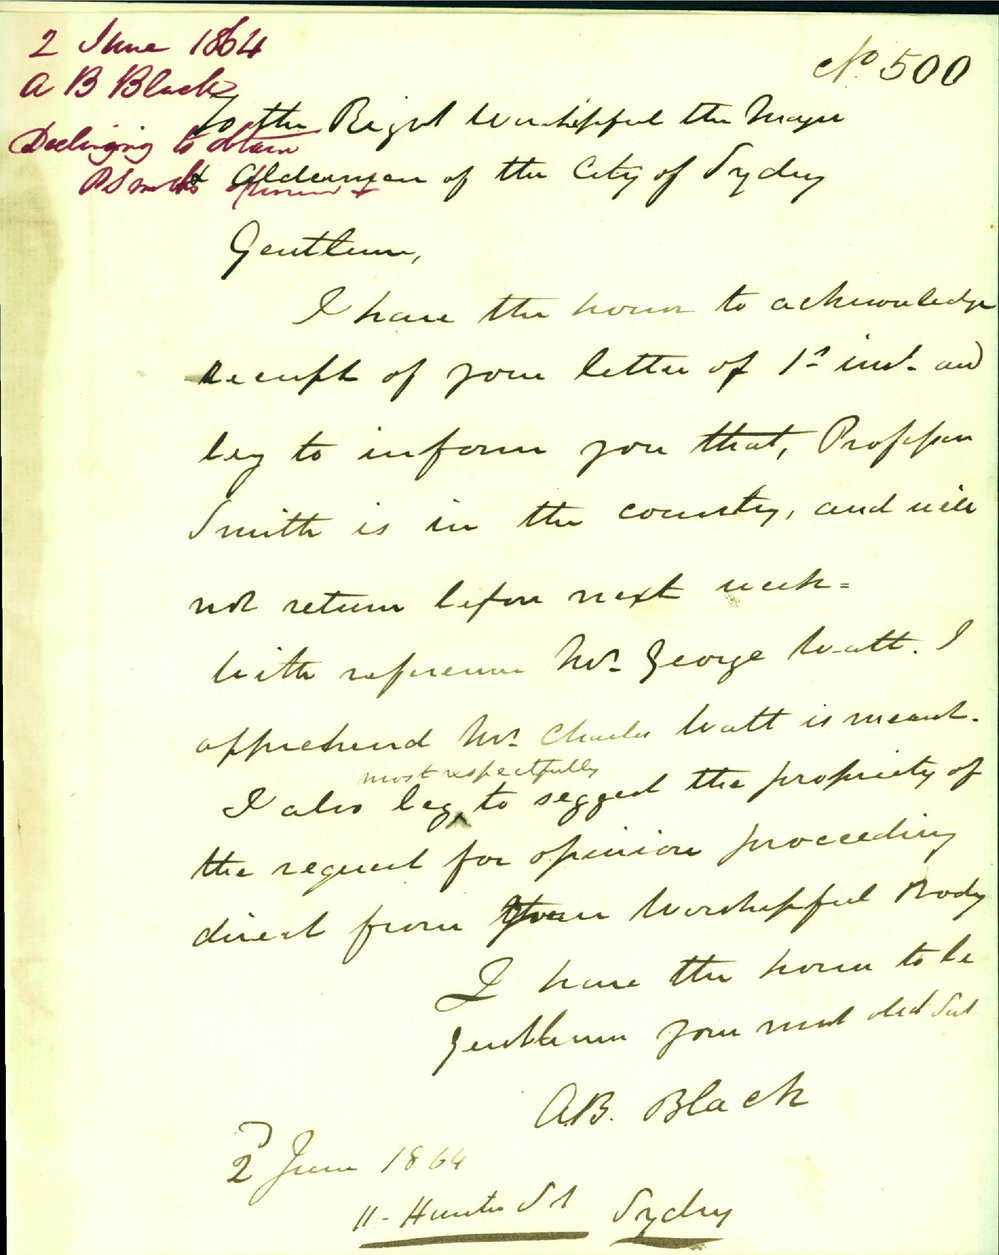 2 June 1864
A B Black
Declining to obtain
P Smith's opinion
No 500
To the Right Worshipful the Mayor
& Aldermen of the City of Sydney
Gentlemen,
I have the honor to acknowledge
receipt of your letter of 1st inst. and
beg to inform you that, Professor
Smith is in the country, and will
not return before next week =
With reference Mr. George Watt. I
apprehend Mr. Charles Watt is meant.
most respectfully
I also beg ^ to seggest the propriety of
the request for opinion proceeding
direct from your Worshipful Body
I have the honor to be
Gentlemen your most obdt Svt
A.B. Black
2d June 1864
11 - Hunter St Sydney